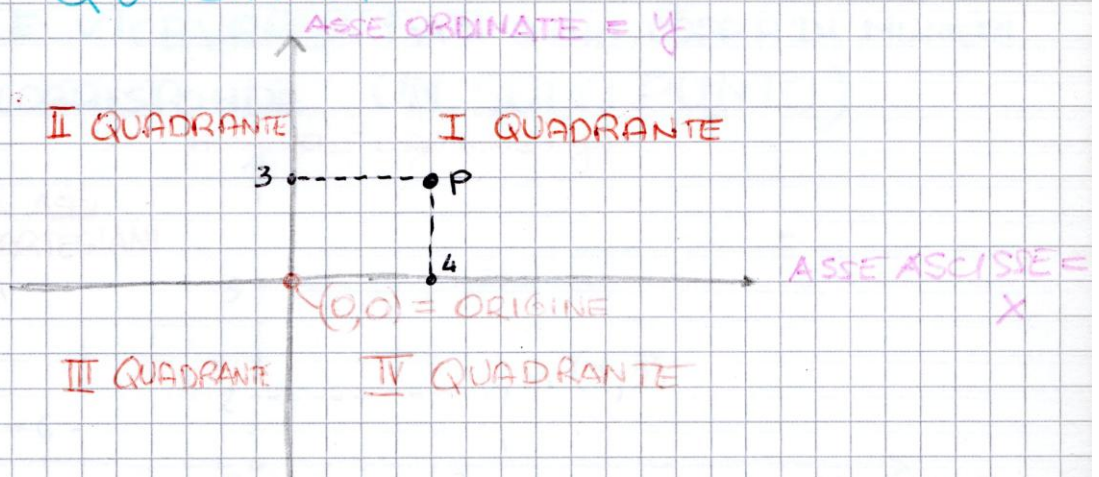 ASSE ORDINATE = y
II QUADRANTE
I QUADRANTE
3
P
4
ASSE ASCISSE =
X
(0,0) = ORIGINE
III QUADRANTE
IV QUADRANTE